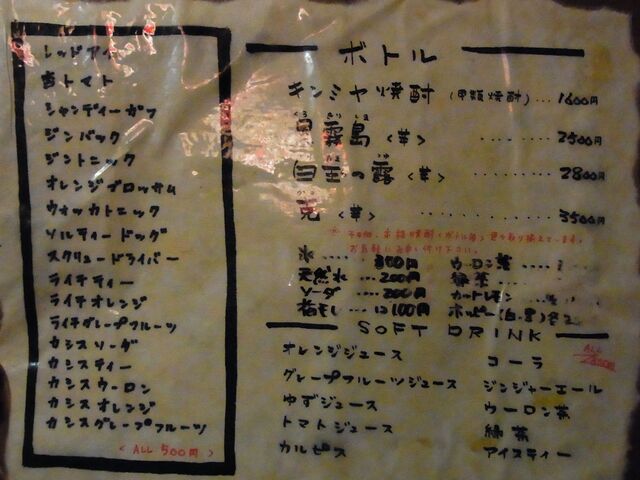 レッドアイ
雪トマト
シャンディーガフ
ジンバック
ジントニック
オレンジブロッサム
ウォッカトニック
ソルティードッグ
スクリュードライバー
ライチティー
ライチオレンジ
ライチグレープフルーツ
カシスソーダ
カシスティー
カシスウーロン
カシスオレンジ
カシスグレープフルーツ
< ALL 500円 >
ボトル
キンミヤ焼酎 (甲類焼酎) ... 1600円
くろ きり しま
黒霧島 <芋> ........ 2500円
白玉の露 <芋> ........ 2800円
克 <芋> ........ 3500円
※その他、本格焼酎<ボトル有>色々取り揃えています。
お気軽にお申し付け下さい。
氷 .... 300円
天然水 ... 200円
ソーダ ... 200円
梅干し ... 1コ100円
ウーロン茶 ....
緑茶 ....
カットレモン ....
ホッピー(白・黒)各
SOFT DRINK
ALL
オレンジジュース
グレープフルーツジュース
ゆずジュース
トマトジュース
カルピス
コーラ
ジンジャーエール
ウーロン茶
緑茶
アイスティー